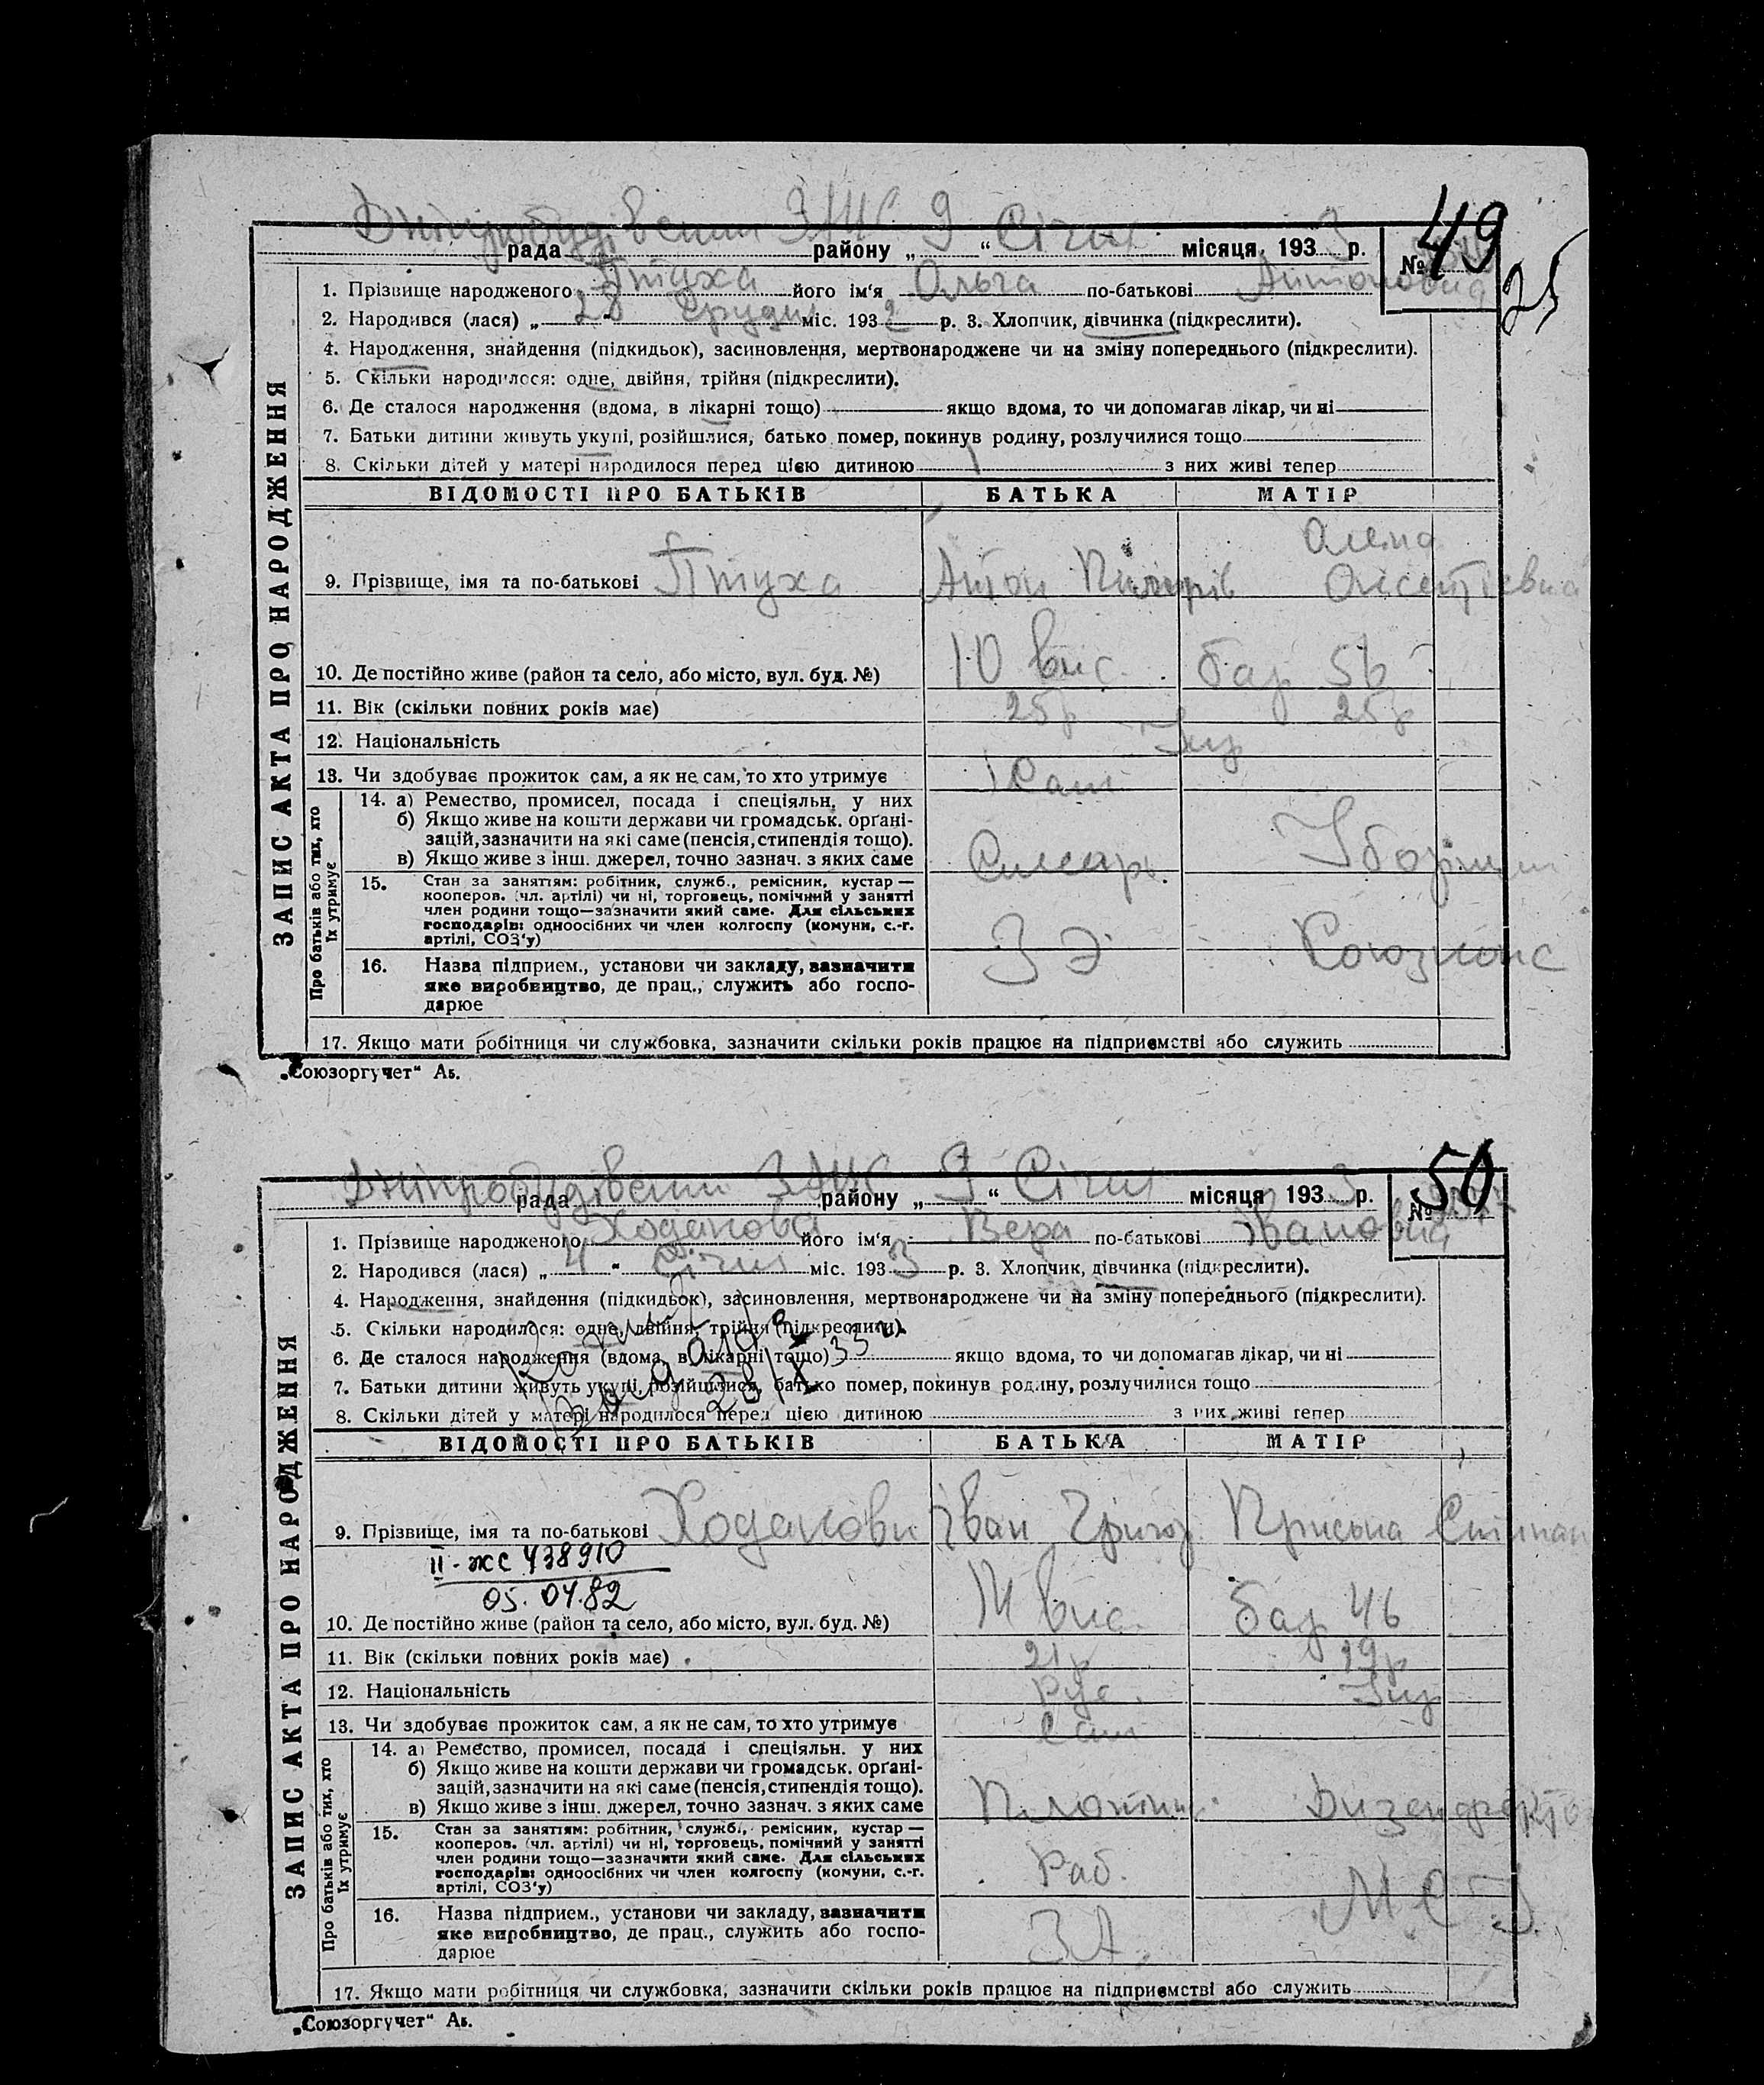 Дніпробудівський ЗАГС 9 Січня 3
рада района „ “ місяця, 193 р.
№ 49
25
1. Прізвище народженого Птуха його ім‘я Ольга по-батькові Антоновна
2. Народився (лася) „ 28 “ Грудня міс. 193 2 р. 3. Хлопчик, дівчинка (підкреслити).
4. Народження, знайдення (підкидьок), засиновлення, мертвонароджене чи на зміну попереднього (підкреслити).
5. Скільки народилося: одне, двійня, трійня (підкреслити).
6. Де сталося народження (вдома, в лікарні тощо) якщо вдома, то чи допомагав лікар, чи ні
7. Батьки дитини живуть укупі, розійшлися, батько помер, покинув родину, розлучилися тощо
8. Скільки дітей у матері народилося перед цією дитиною 1 з них живі тепер
ЗАПИС АКТА ПРО НАРОДЖЕННЯ
ВІДОМОСТІ ПРО БАТЬКІВ БАТЬКА МАТІР
Олена
9. Прізвище, імя та по-батькові Птуха Антон
10. Де постійно живе (район та село, або місто, вул. буд. №) 10 вис. бар 56
11. Вік (скільки повних років має) 25р 25р
12. Національність Укр
13. Чи здобуває прожиток сам, а як не сам, то хто утримує Сам
Про батьків або тих, хто їх утримує
14. а) Ремество, промисел, посада і спеціяльн. у них
б) Якщо живе на кошти держави чи громадськ. орґані-
зацій, зазначити на які саме (пенсія, стипендія тощо).
в) Якщо живе з інш. джерел, точно зазнач. з яких саме Слюсарь
15. Стан за заняттям: робітник, служб., ремісник, кустар —
кооперов. (чл. артілі) чи ні, торговець, помічний у занятті
член родини тощо—зазначити який саме. Для сільських
господарів: одноосібних чи член колгоспу (комуни, с.-г.
артілі, СОЗ‘у)
16. Назва підприєм., установи чи закладу, зазначити
яке виробництво, де прац., служить або госпо-
дарює
17. Якщо мати робітниця чи службовка, зазначити скільки років працює на підприємстві або служить
„Союзоргучет“ Аз.
Дніпробудівський ЗАГС 9 Січня 3
рада району „ “ місяця 193 р.
№ 50
1. Прізвище народженого Ходакова його ім‘я Вера по-батькові Івановна
2. Народився (лася) „ 4 “ Січня міс. 193 3 р. 3. Хлопчик, дівчинка (підкреслити).
4. Народження, знайдення (підкидьок), засиновлення, мертвонароджене чи на зміну попереднього (підкреслити).
5. Скільки народилося: одне, двійня, трійня (підкреслити).
6. Де сталося народження (вдома, в лікарні тощо) якщо вдома, то чи допомагав лікар, чи ні
7. Батьки дитини живуть укупі, розійшлися, батько помер, покинув родину, розлучилися тощо
28/X 33
8. Скільки дітей у матері народилося перед цією дитиною з них живі тепер
ЗАПИС АКТА ПРО НАРОДЖЕННЯ
ВІДОМОСТІ ПРО БАТЬКІВ БАТЬКА МАТІР
9. Прізвище, імя та по-батькові Ходакови Іван Григор. Приська Степан
II-жс 438910
05.04.82
10. Де постійно живе (район та село, або місто, вул. буд. №) 14 вис. бар 46
11. Вік (скільки повних років має) 21р 19р
12. Національність Рус. Укр
13. Чи здобуває прожиток сам, а як не сам, то хто утримує Сам
Про батьків або тих, хто їх утримує
14. а) Ремество, промисел, посада і спеціяльн. у них
б) Якщо живе на кошти держави чи громадськ. орґані-
зацій, зазначити на які саме (пенсія, стипендія тощо).
в) Якщо живе з інш. джерел, точно зазнач. з яких саме Плотник
15. Стан за заняттям: робітник, служб., ремісник, кустар —
кооперов. (чл. артілі) чи ні, торговець, помічний у занятті
член родини тощо—зазначити який саме. Для сільських
господарів: одноосібних чи член колгоспу (комуни, с.-г.
артілі, СОЗ‘у) Раб.
16. Назва підприєм., установи чи закладу, зазначити
яке виробництво, де прац., служить або госпо-
дарює
17. Якщо мати робітниця чи службовка, зазначити скільки років працює на підприємстві або служить
„Союзоргучет“ Аз.